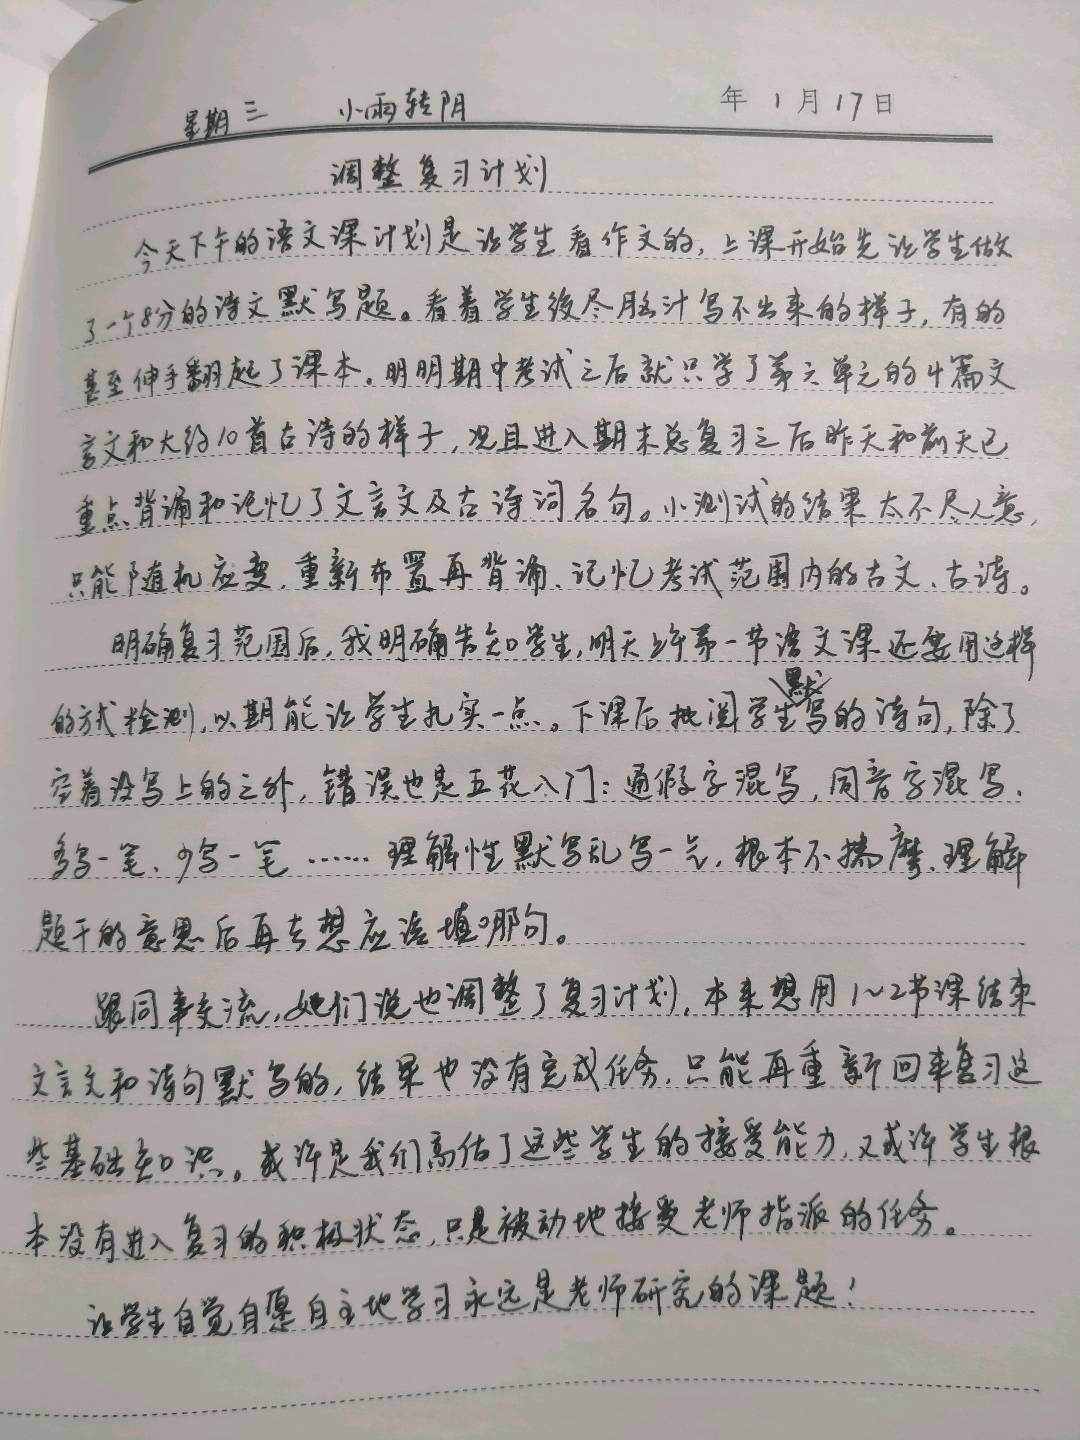 星期三 小雨转阴 年1月17日
调整复习计划
今天下午的语文课计划是让学生看作文的，上课开始先让学生做
了一个8分的诗文默写题。看着学生绞尽脑汁写不出来的样子，有的
甚至伸手翻起了课本。明明期中考试之后就只学了第六单元的4篇文
言文和大约10首古诗的样子，况且进入期末总复习之后昨天和前天已
重点背诵和记忆了文言文及古诗词名句。小测试的结果太不尽人意，
只能随机应变，重新布置再背诵、记忆考试范围内的古文、古诗。
明确复习范围后，我明确告知学生，明天上午第一节语文课还要用这样
的方式检测，以期能让学生扎实一点。下课后批阅学生默写的诗句，除了
空着没写上的之外，错误也是五花入门：通假字混写，同音字混写、
多写一笔、少写一笔……理解性默写乱写一气，根本不揣摩、理解
题干的意思后再去想应该填哪句。
跟同事交流，她们说也调整了复习计划，本来想用1~2节课结束
文言文和诗句默写的，结果也没有完成任务，只能再重新回来复习这
些基础知识。或许是我们高估了这些学生的接受能力，又或许学生根
本没有进入复习的积极状态，只是被动地接受老师指派的任务。
让学生自觉自愿自主地学习永远是老师研究的课题！